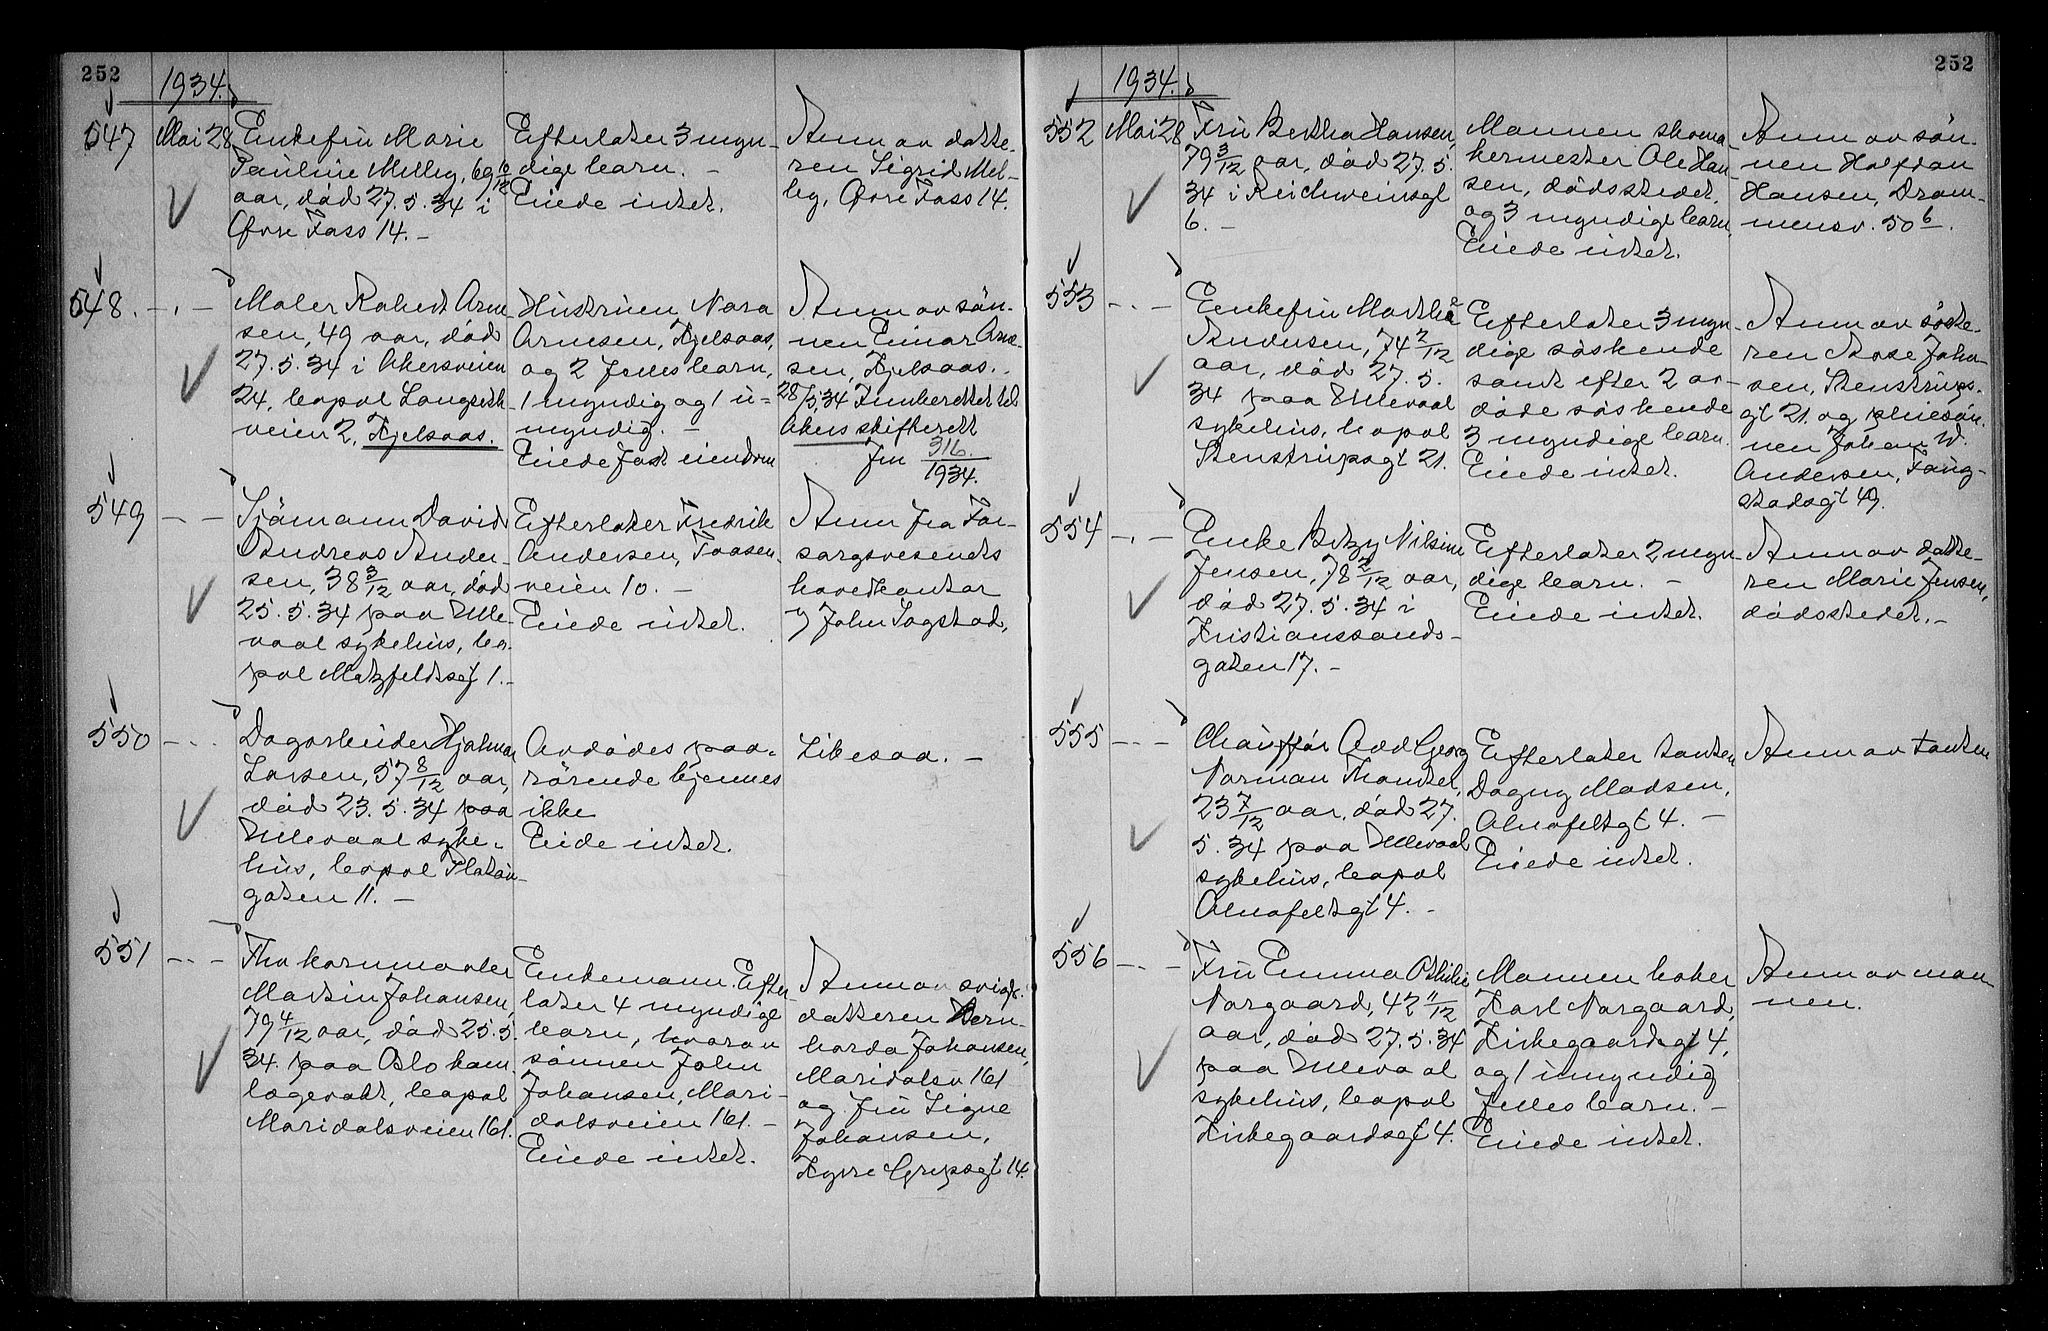 252
1934.
547
Mai 28
Enkefru Marie
Pauline Melby, 69 6/12
aar, død 27.5.34 i
Øvre Foss 14. –
Efterlater 3 myn-
dige barn. –
Eiede intet.
Anm av datte-
ren Sigrid Mel-
by, Øvre Foss 14.
548. – . –
Maler Robert Arne-
sen, 49 aar, død
27.5.34 i Akersveien
24, bopæl Langseth-
veien 2, Kjelsaas.
Hustruen Nora
Arnesen, Kjelsaas,
og 2 felles barn,
1 myndig og 1 u-
myndig. –
Eiede fast eiendom
Anm av søn-
nen Einar Arne-
sen, Kjelsaas.
28/5.34 Innberettet til
Akers skifterett
Jnr 316.
1934.
549 – –
Sjømann David
Andreas Ander-
sen, 38 3/12 aar, død
25.5.34 paa Ulle-
vaal sykehus, bo-
pæl Motzfeldtsgt 1. –
Efterlater Fredrik
Andersen, Traasen-
veien 10. –
Eiede intet.
Anm fra For-
sorgsvesenets
hovedkontor
v John Sogstad,
550 – . .
Dagarbeider Hjalmar
Larsen, 57 8/12 aar,
død 23.5.34 paa
Ullevaal syke-
hus, bopæl Platou-
gaten 11. –
Avdødes paa-
rørende kjennes
ikke
Eide intet.
Likesaa. –
551 – . –
Fhv kornmaaler
Martin Johansen,
79 4/12 aar, død 25.5
34. paa Oslo kom.
lægevakt, bopæl
Maridalsveien 161.
Enkemann. Efter-
later 4 myndige
barn, hvorav
sønnen John
Johansen, Mari-
dalsveien 161. –
Eiede intet.
Anm av sviger-
datteren Bern-
harda Johansen,
Maridalsv 161
og fru Signe
Johansen,
Kyrre Grepsgt 14.
252
1934.
552
Mai 28
Fru Bertha Hansen,
79 3/12 aar, død 27.5.
34 i Reichweinsgt
6. –
Mannen skoma-
kermester Ole Han-
sen, dødsstedet,
og 3 myndige barn,
Eiede intet.
Anm av søn-
nen Halfdan
Hansen, Dram-
mensv. 50 b.
553 – . –
Enkefru Marthea
Andersen, 74 2/12
aar, død 27.5.
34 paa Ullevaal
sykehus, bopæl
Stenstrupsgt 21.
Efterlater 3 myn-
dige søskende
samt efter 2 av-
døde søskende
3 myndige barn.
Eiede intet.
Anm av søste-
ren Aase Johan-
sen, Stenstrups-
gt 21 og pleiesøn-
nen Johan W.
Andersen, Faug-
stadsgt 49.
554 – . –
Enke Betzy Nilsine
Jensen, 78 2/12 aar,
død 27.5.34 i
Kristianssands-
gaten 17. –
Efterlater 2 myn-
dige barn. –
Eiede intet.
Anm av datte-
ren Marie Jensen,
dødsstedet. –
555 – . –
Chauffør Odd Georg
Norman
23 7/12 aar, død 27.
5.34 paa Ullevaal
sykehus, bopæl
Alnafeltgt 4. –
Efterlater tanten
Dagny Madsen,
Alnafeltgt 4. –
Eiede intet.
Anm av tanten
556 – . –
Fru Emma Othilie
Norgaard, 42 11/12
aar, død 27.5.34
paa Ullevaal
sykehus, bopæl
Kirkegaardsgt 4.
Mannen baker
Karl Norgaard,
Kirkegaardsgt 4,
og 1 umyndig
felles barn. –
Eiede intet.
Anm av man-
nen.